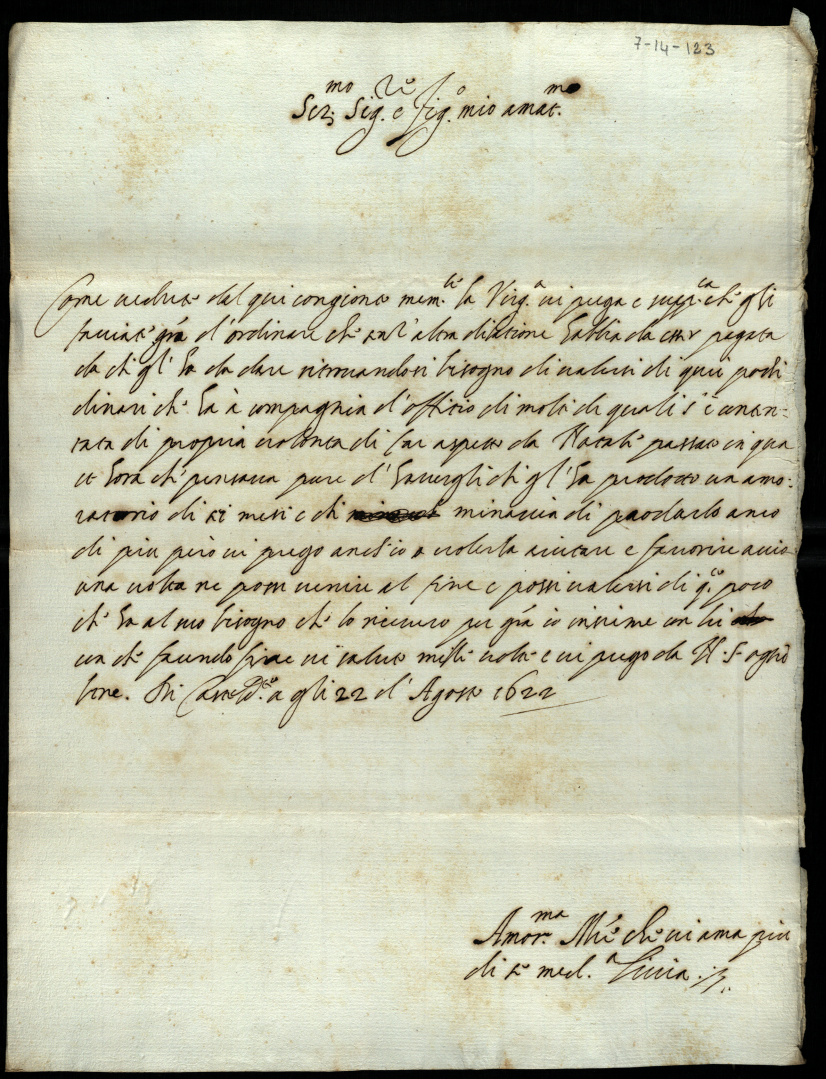 7-14-123
Ser.mo Sig.re e Sig.r mio amat.mo
Come vedrete dal qui congionto mem.le la Virg.a vi prega e supp.ca ch'e gli
facciate gr̃a d'ordinare che senz'altra dilatione habbia da esser pagata
da chi gl'ha da dare ritrovandosi bisogno di valersi di quei pochi
dinari che ha à compagnia d'offitio di molti de quali s'è conten-
tata di propria volontà di far aspetto da Natale passato in qua
et hora che pensava pure d'haverli chi gl'ha prodotto un amo-
ratorio di sei mesi e di minaccia di prodarlo anco
di piu però vi prego anch'io a volerla aiutare e favorire acciò
una volta ne possi venire al fine e possi valersi di q.to poco
che ha al suo bisogno che lo ricevero per gr̃a io insieme con lei
con che facendo fine vi saluto mille volte e vi prego da N. S. ogni
bene. Di Castel D.te a gli 22 d'Agosto 1622
Amor.ma M.re che vi ama piu
di se med.a Livia